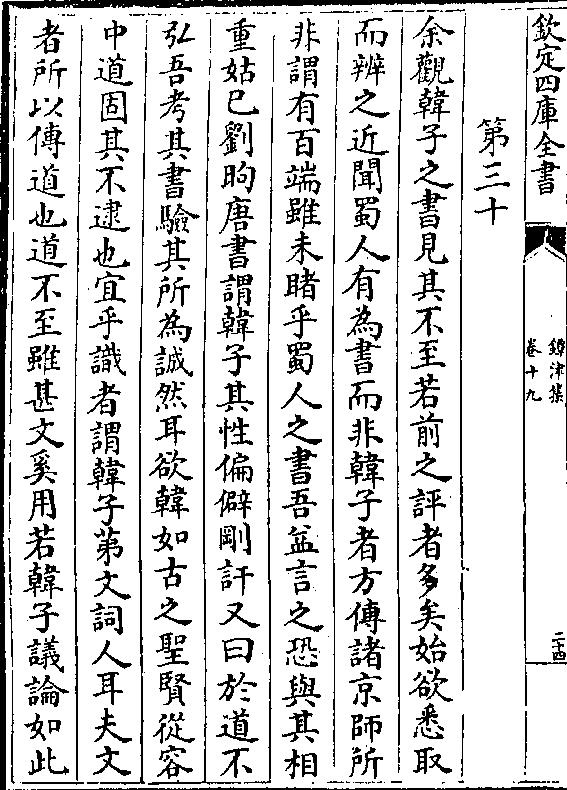 欽定四庫全書
鐔津集
卷十九
二十四
第三十
余觀韓子之書見其不至若前之評者多矣始欲悉取
而辨之近聞蜀人有為書而非韓子者方傳諸京師所
非謂有百端雖未睹乎蜀人之書吾益言之恐與其相
重姑已劉昫唐書謂韓子其性偏僻剛訐又曰於道不
弘吾考其書驗其所為誠然耳欲韓如古之聖賢從容
中道固其不逮也宜乎識者謂韓子第文詞人耳夫文
者所以傳道也道不至雖甚文奚用若韓子議論如此